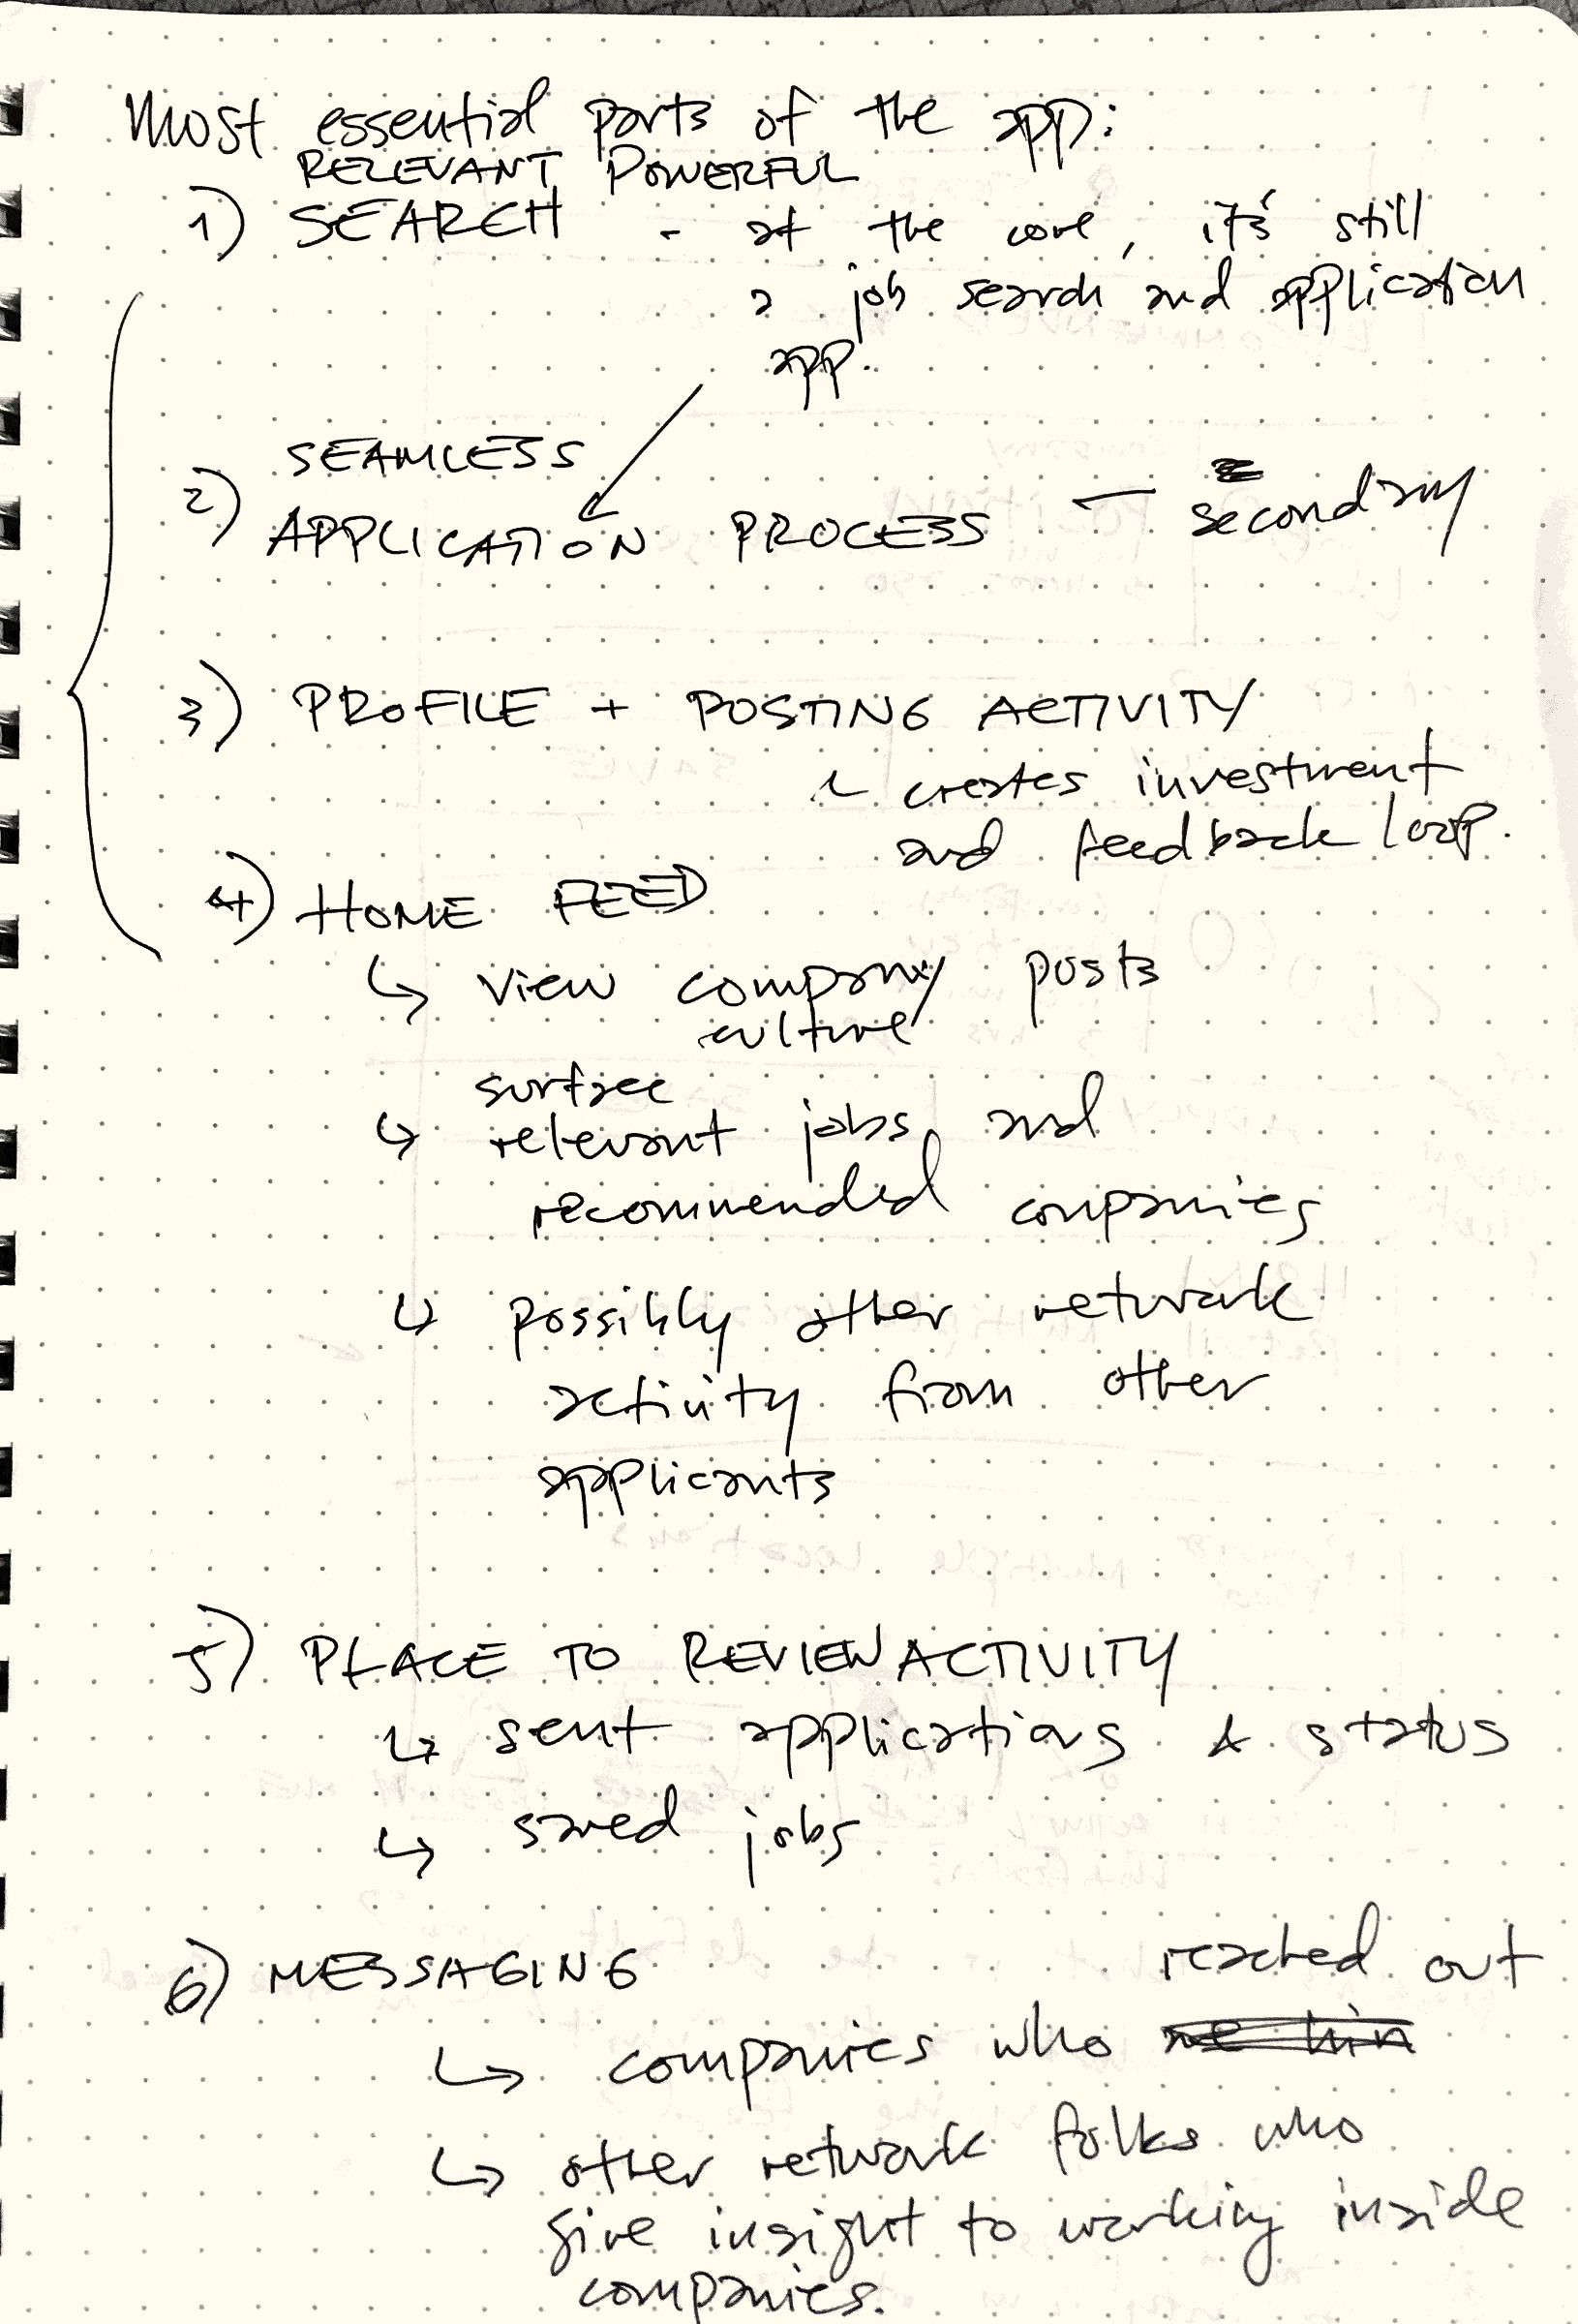 Most essential parts of the app:
RELEVANT, POWERFUL
1) SEARCH - at the core, it's still
a job search and application
app.
SEAMLESS
2) APPLICATION PROCESS — secondary
3) PROFILE + POSTING ACTIVITY
creates investment
and feedback loop.
4) HOME FEED
↳ view company posts
culture
surface
↳ relevant jobs and
recommended companies
↳ possibly other network
activity from other
applicants
5) PLACE TO REVIEW ACTIVITY
↳ sent applications & status
↳ saved jobs
6) MESSAGING
reached out
↳ companies who
↳ other network folks who
give insight to working inside
companies.